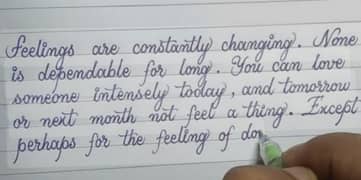 Feelings are constantly changing. None
is dependable for long. You can love
someone intensely today, and tomorrow
or next month not feel a thing. Except
perhaps for the feeling of